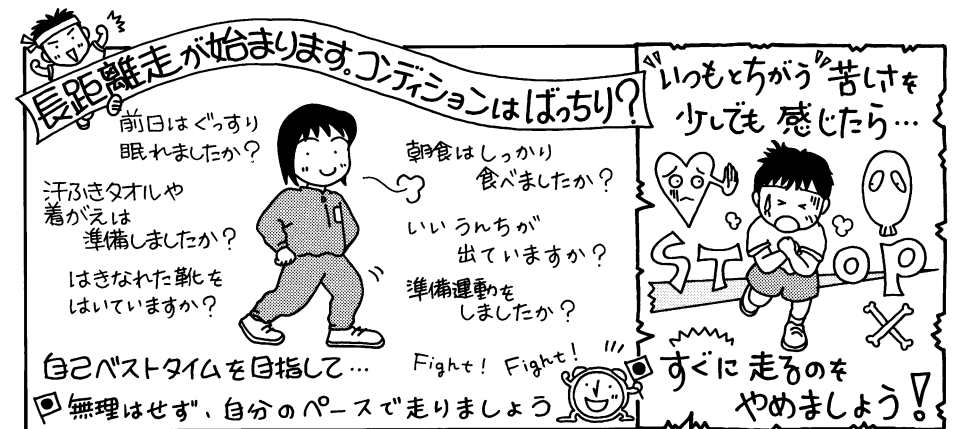 長距離走が始まります。コンディションはばっちり？
前日はぐっすり
眠れましたか？
汗ふきタオルや
着がえは
準備しましたか？
はきなれた靴を
はいていますか？
朝食はしっかり
食べましたか？
いいうんちが
出ていますか？
準備運動を
しましたか？
自己ベストタイムを目指して…
Fight! Fight!
無理はせず、自分のペースで走りましょう
"いつもとちがう"苦しさを
少しでも感じたら…
STOP
すぐに走るのを
やめましょう！